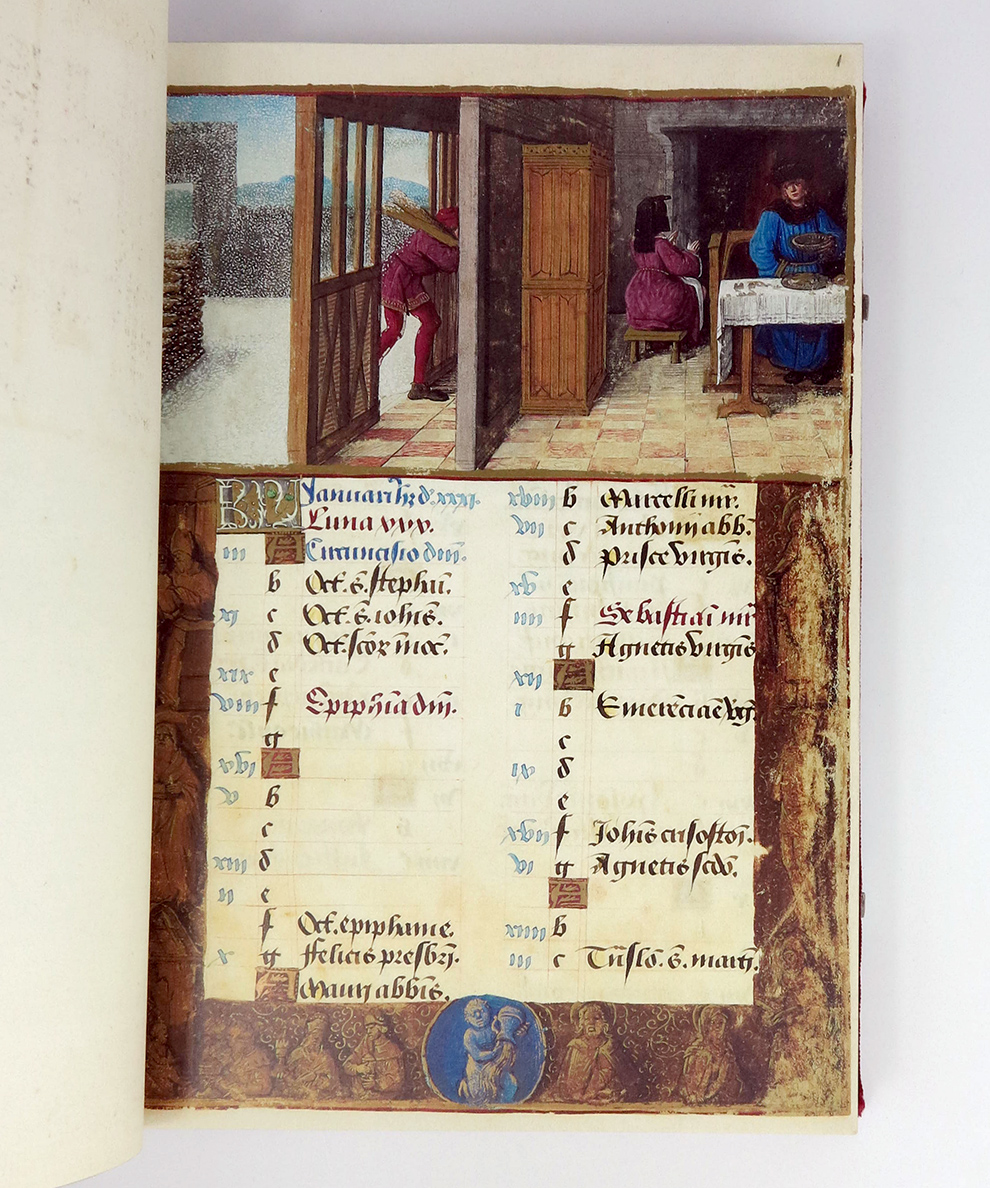 1
KL Januari' hz d. xxxi.
Luna xxx.
iii A Circuncisio dni.
b Oct. s. stephani.
xi c Oct. s. iohis.
d Oct. scor inoc.
xix e
viii f Epiphia dni.
g
xvi A
v b
c
xiii d
ii e
f Oct. epiphanie.
x g ffelicis presbri.
A Mauri abbis.
xviii b Marcelli mr.
vii c Anthonii abb.
d prisce virgis.
xv e
iiii f Sebastiai mr
g Agnetis virgis
xii A
i b Emerenciae vg.
c
ix d
e
xvii f Johis crisostoi.
vi g Agnetis scdo.
A
xiiii b
iii c